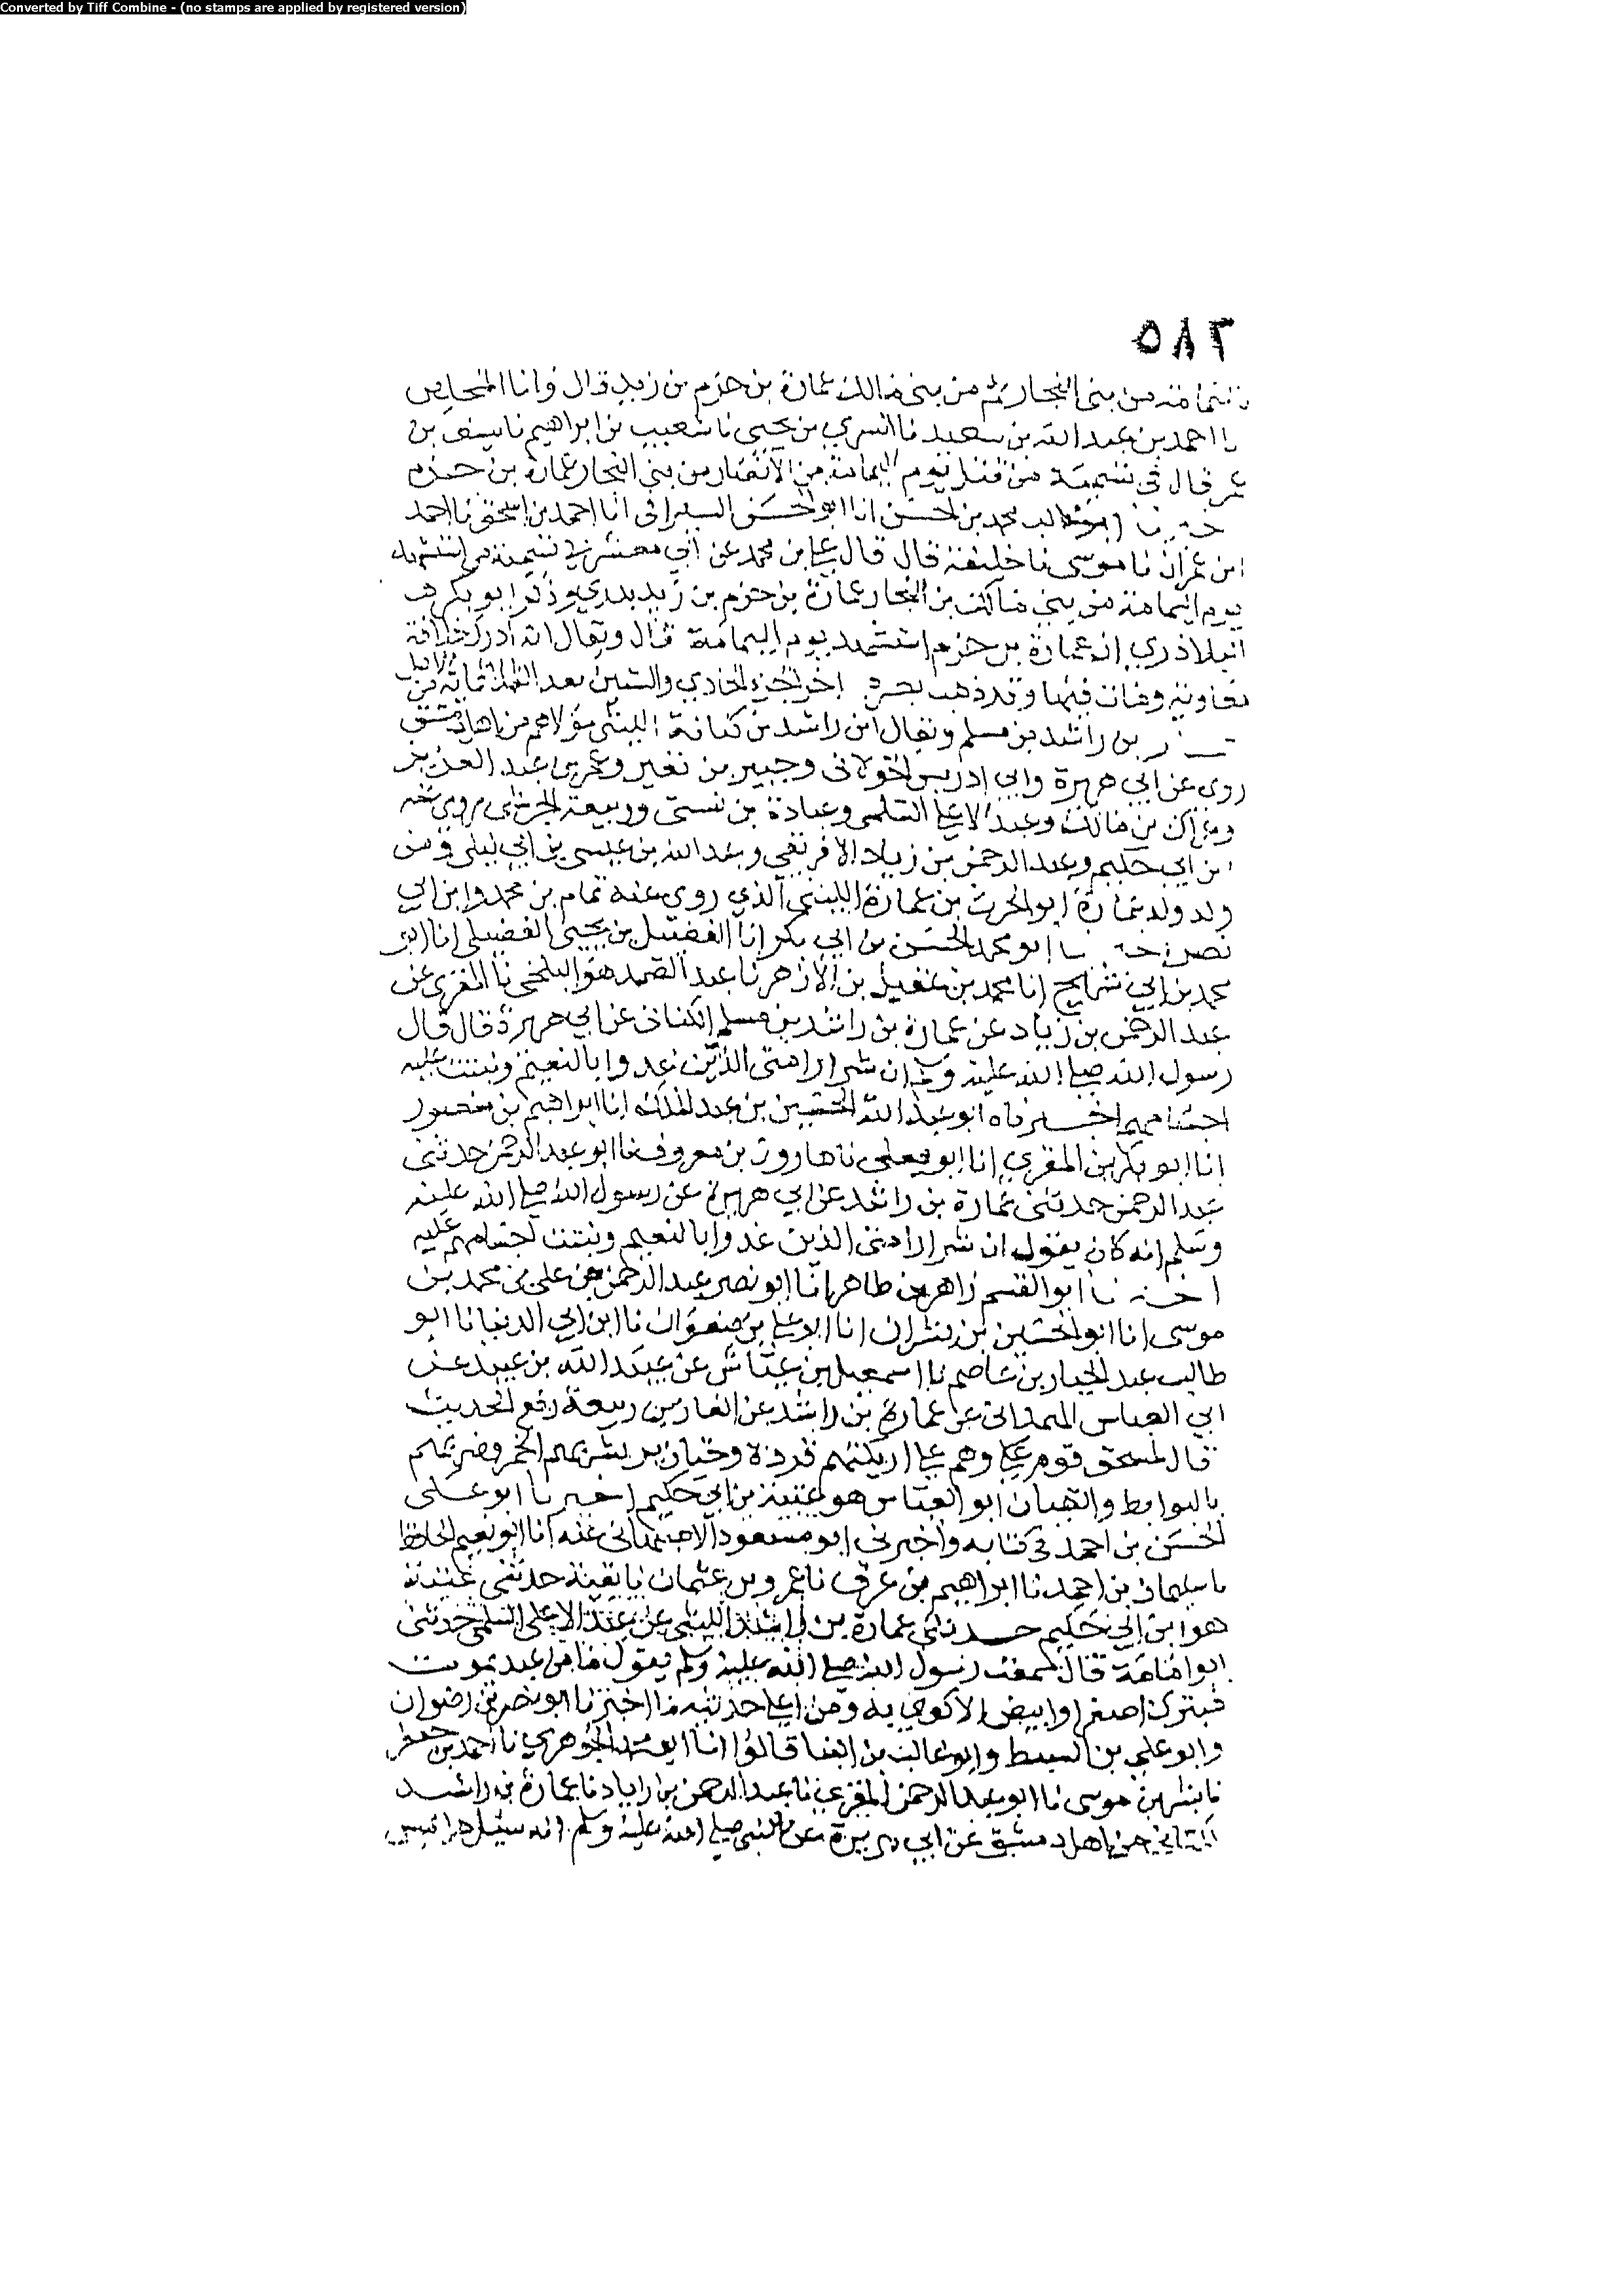 Converted by Tiff Combine - (no stamps are applied by registered version)
٥٨٢
من بني النجار ثم من بني مالك عمارة بن حزم بن زيد قال وانا المخلص
نا احمد بن عبد الله بن سعيد نا السري بن يحيى نا شعيب بن ابراهيم نا سيف بن
عمر قال في تسمية من قتل يوم اليمامة من الانصار من بني النجار عمارة بن حزم
ابو غالب محمد بن الحسن انا ابو الحسن السيرافي انا احمد بن اسحق نا احمد
ابن عمران نا موسى نا خليفة قال قال علي بن محمد عن ابي معشر في تسمية من استشهد
يوم اليمامة من بني مالك بن النجار عمارة بن حزم بن زيد بدري وذكر ابو بكر
البلاذري ان عمارة بن حزم استشهد يوم اليمامة قال ويقال انه ادرك خلافة
معاوية ومات فيها وقد ذهب بصره اخر الجزء الحادي والستين بعد الثلاثمائة من
بن راشد بن مسلم ويقال ابن راشد بن كنانة الليثي مولاهم من اهل دمشق
روى عن ابي هريرة وابي ادريس الخولاني وجبير بن نفير وعمر بن عبد العزيز
وعراك بن مالك وعبد الاعلى السلمي وعبادة بن نسي وربيعة الجرشي روى عنه
ابن ابي حكيم وعبد الرحمن بن زياد الافريقي وعبد الله بن عيسى بن ابي ليلى ومن
ولد ولد عمارة ابو الحرث بن عمارة الليثي الذي روى عنه تمام بن محمد وابن ابي
نصر ابو محمد الحسن بن ابي بكر انا الفضيل بن يحيى الفضيلي انا ابو
محمد بن ابي شريح انا محمد بن عقيل بن الازهر نا عبد الصمد هو البلخي نا المقري عن
عبد الرحمن بن زياد عن عمارة بن راشد بن مسلم الكناني عن ابي هريرة قال قال
رسول الله صلى الله عليه وسلم ان شرار امتي الذين غدوا بالنعيم ونبتت عليه
اجسامهم اخبرناه ابو عبد الله الحسين بن عبد الملك انا ابراهيم بن منصور
انا ابو بكر بن المقري انا ابو يعلى نا هارون بن معروف نا ابو عبد الرحمن حدثني
عبد الرحمن حدثني عمارة بن راشد عن ابي هريرة عن رسول الله صلى الله عليه
وسلم انه كان يقول ان شرار امتي الذين غدوا بالنعيم ونبتت اجسامهم عليه
اخبرنا ابو القسم زاهر بن طاهر انا ابو نصر عبد الرحمن بن علي بن محمد بن
موسى انا ابو الحسين بن بشران انا ابو علي بن صفوان نا ابن ابي الدنيا نا ابو
طالب عبد الجبار بن عاصم نا اسمعيل بن عياش عن عبيد الله بن عبيد عن
ابي العباس الهمداني عن عمارة بن راشد عن الغاز بن ربيعة رفع الحديث
قال ليمسخن قوم وهم على اريكتهم قردة وخنازير بشربهم الخمر وضربهم
بالبرابط والقيان ابو العباس هو عتبة بن ابي حكيم اخبرنا ابو علي
الحسن بن احمد في كتابه واخبرني ابو مسعود الاصبهاني عنه انا ابو نعيم الحافظ
نا سليمان بن احمد نا ابراهيم بن عرق نا عمرو بن عثمان نا بقية حدثني عتبة
هو ابن ابي حكيم حدثني عمارة بن راشد الليثي عن عبد الاعلى السلمي حدثني
ابو امامة قال سمعت رسول الله صلى الله عليه وسلم يقول ما من عبد يموت
فيترك اصفر او ابيض الا كوي به ومن اعلى حديثه ما اخبرنا ابو نصر بن رضوان
وابو علي بن السبط وابو غالب بن البنا قالوا انا ابو محمد الجوهري نا احمد بن جعفر
نا بشر بن موسى نا ابو عبد الرحمن المقري نا عبد الرحمن بن زياد نا عمارة بن راشد
الكناني من اهل دمشق عن ابي هريرة عن النبي صلى الله عليه وسلم انه سئل هل